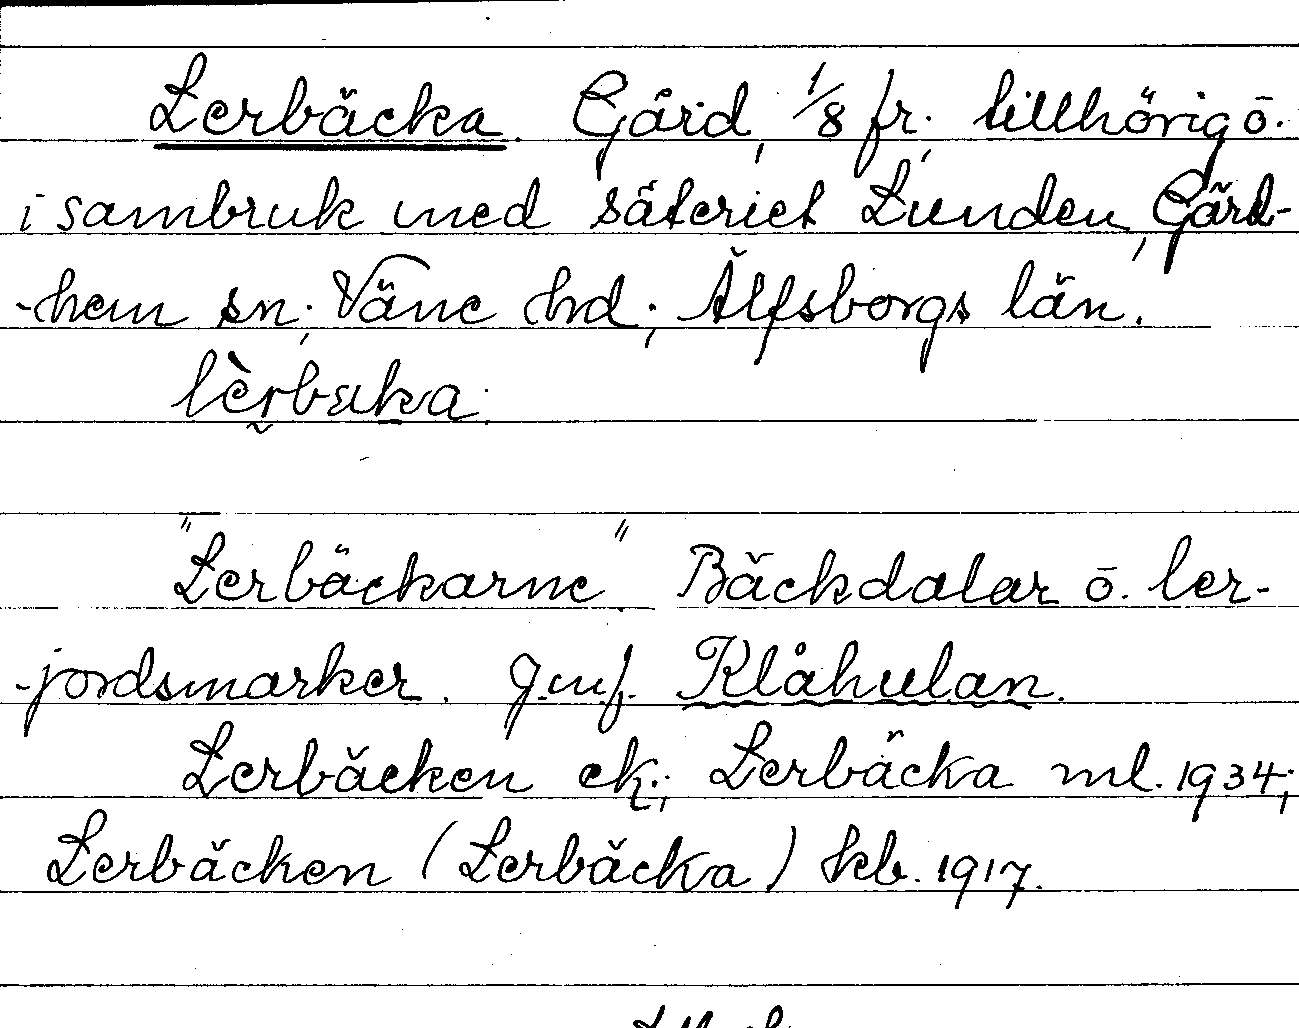 Lerbäcka. Gård, 1/8 fr; tillhörig o.
i sambruk med säteriet Lunden, Gärd-
-hem sn; Väne hd; Älfsborgs län.

"Lerbäckarne". Bäckdalar o. ler-
-jordsmarker. Jmf. Klåhulan.
Lerbäcken ek; Lerbäcka ml. 1934;
Lerbäcken (Lerbäcka) kb. 1917.